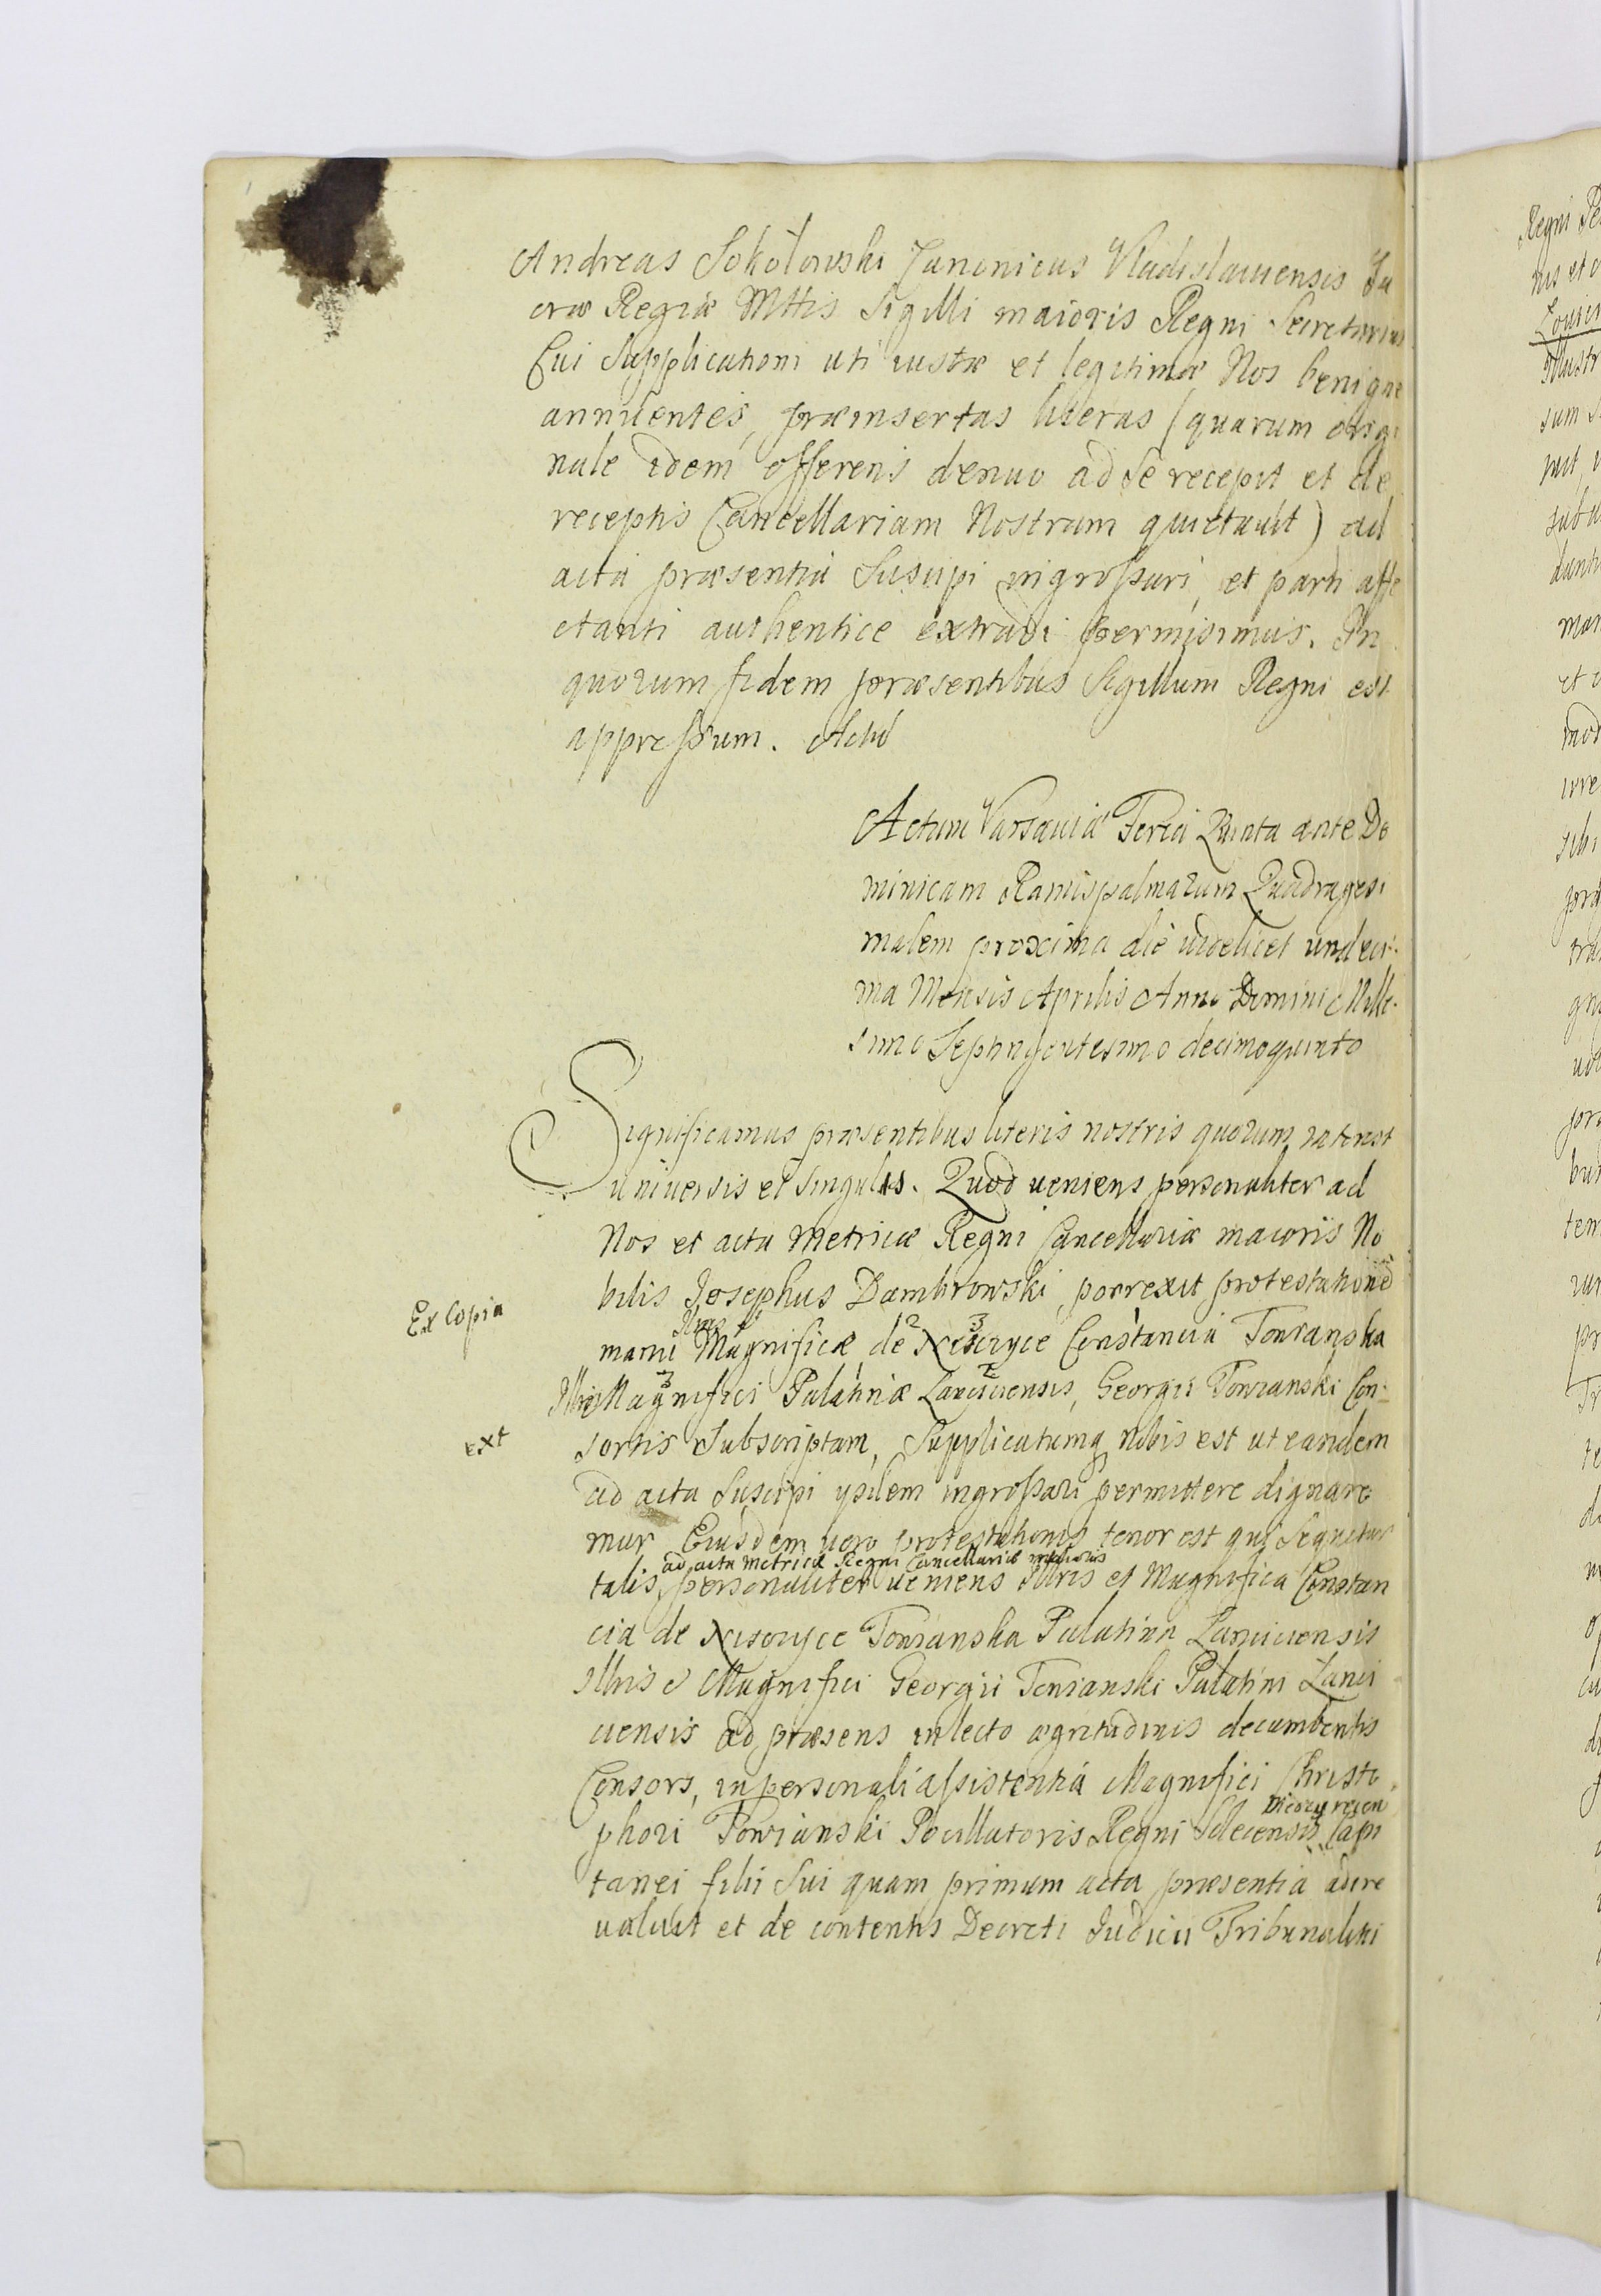 Andreas Sokołowski Canonicus Vladislauiensis Sa
cræ Regiæ Mttis Sigilli maioris Regni Secretarius
Cui Supplicationi uti iustæ et legitimæ Nos benigne
annuentes, præinsertas literas (quarum origi
nale idem offerens denuo ad se recepit et de
receptis Cancellariam Nostram quietauit) ad
acta præsentia Suscipi ingrossari, et parti affe
ctanti authentice extradi permisimus. In
quorum fidem præsentibus Sigillum Regni est
appressum. Actu
Actum Varsauiæ Feria Quinta ante Do
minicam Ramispalmarum Quadragesi
malem proxima die uidelicet undeci-
ma Mensis Aprilis Anno Domini Mille-
simo Septingentesimo decimoquinto
Significamus præsentibus literis nostris quorum interest
uniuersis et singulis. Quod ueniens personaliter ad
Nos et acta Metricæ Regni Cancellariæ maioris No
bilis Josephus Dambrowski, porrexit protestationē
Ex Copia
manu Magnificæ de Constancia Towianska
Magnifici Palatinæ Lanciciensis, Georgii Towianski Con-
ext
sortis Subscriptam, Supplicatumq nobis est ut eandem
ad acta Suscipi ysdem ingrossari permittere dignare
mur Eiusdem uero protestationis tenor est qui Sequitur
ad acta Metricæ Regni Cancellariæ maioris
talis, personaliter ueniens Illris et Magnifica Constan
cia de Towianska Palatina Lanciciensis
Illris et Magnifici Georgii Towianski Palatini Lanci
ciensis ad præsens in lecto ægritudinis decumbentis
Consors, in personali assistentia Magnifici Christo
phori Towianski Pocillatoris Regni Capi
tanei filii Sui quam primum acta præsentia adire
ualuit et de contentis Decreti Judicii Tribunalitii
Regni
nis et
sum